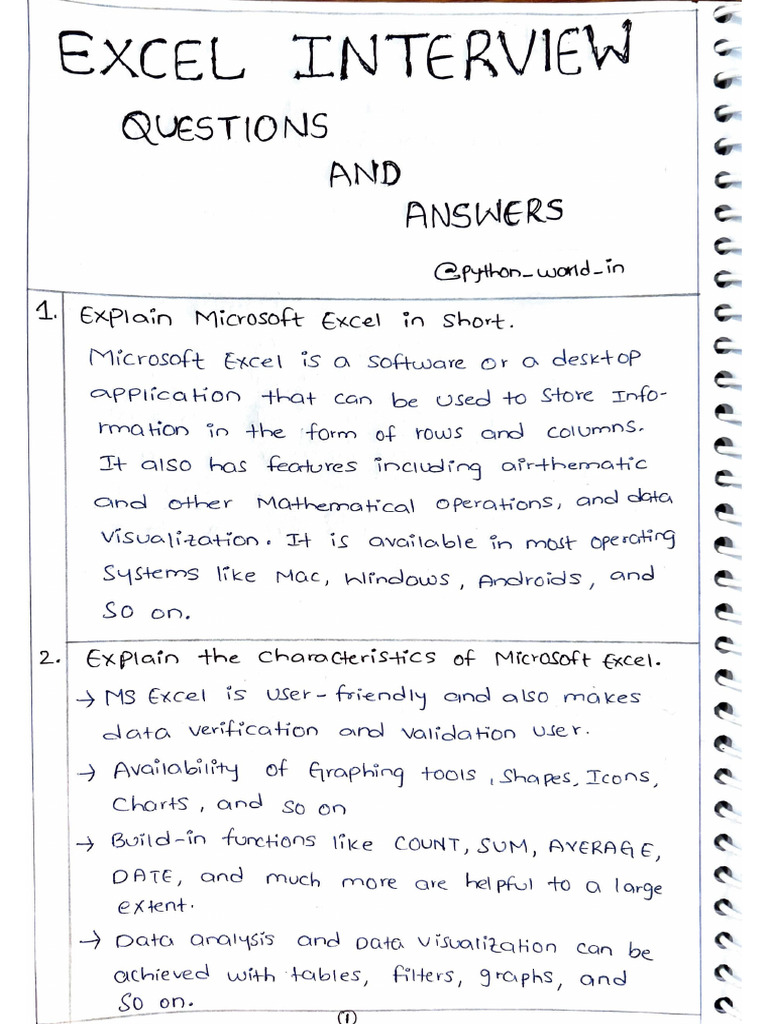 EXCEL INTERVIEW
QUESTIONS
AND
ANSWERS
@python_world_in
1. Explain Microsoft Excel in short.
Microsoft Excel is a software or a desktop
application that can be used to store Info-
rmation in the form of rows and columns.
It also has features including airthematic
and other Mathematical operations, and data
visualization. It is available in most operating
systems like Mac, Windows, Androids, and
so on.
2. Explain the characteristics of Microsoft Excel.
→ MS Excel is user-friendly and also makes
data verification and validation user.
→ Availability of Graphing tools, Shapes, Icons,
Charts, and so on
→ Build-in functions like COUNT, SUM, AVERAGE,
DATE, and much more are helpful to a large
extent.
→ Data analysis and Data visualization can be
achieved with tables, filters, graphs, and
so on.
1